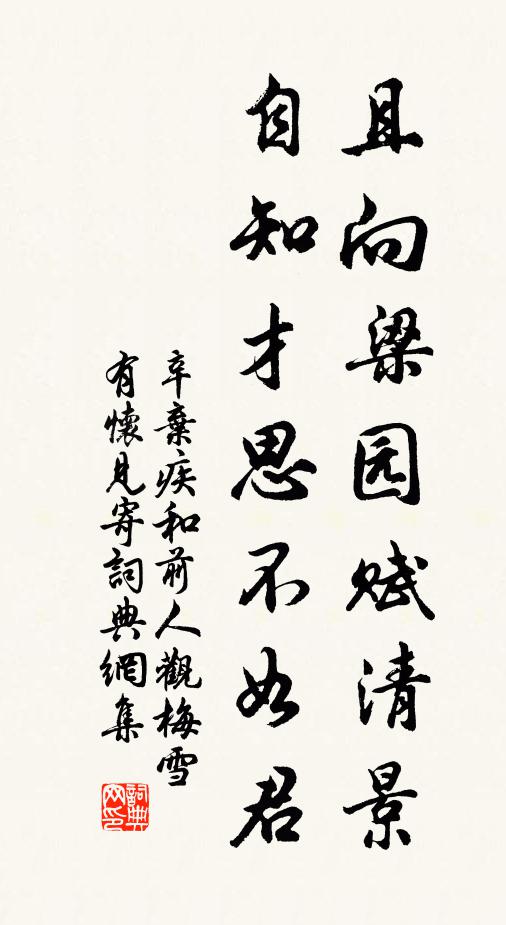 且向梁园赋清景
自知才思不如君
辛棄疾和前人觀梅雪
有懷見寄詞典網集
詞典网印